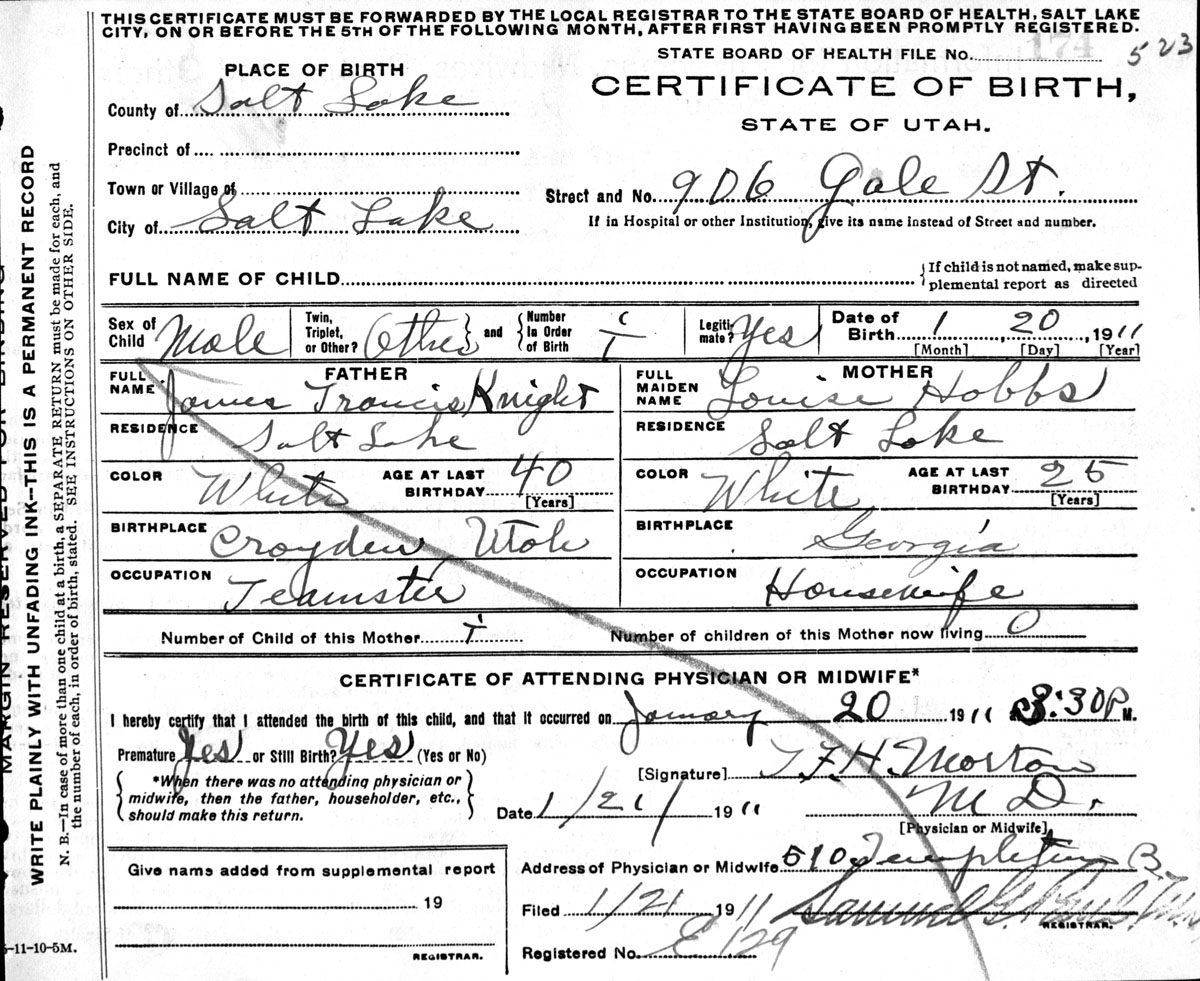 THIS CERTIFICATE MUST BE FORWARDED BY THE LOCAL REGISTRAR TO THE STATE BOARD OF HEALTH, SALT LAKE
CITY, ON OR BEFORE THE 5TH OF THE FOLLOWING MONTH, AFTER FIRST HAVING BEEN PROMPTLY REGISTERED.
STATE BOARD OF HEALTH FILE No. 174 523
PLACE OF BIRTH
CERTIFICATE OF BIRTH,
STATE OF UTAH.
County of Salt Lake
Precinct of
Town or Village of
Street and No. 906 Gale St.
City of Salt Lake
If in Hospital or other Institution, give its name instead of Street and number.
FULL NAME OF CHILD
If child is not named, make sup-
plemental report as directed
Sex of Child Male
Twin, Triplet, or Other? Other
and Number In Order of Birth 1
Legiti-mate? Yes
Date of Birth 1 20 1911
[Month] [Day] [Year]
FATHER
FULL NAME James Francis Knight
RESIDENCE Salt Lake
COLOR White AGE AT LAST BIRTHDAY 40 [Years]
BIRTHPLACE Croyden Utah
OCCUPATION Teamster
MOTHER
FULL MAIDEN NAME Louise Hobbs
RESIDENCE Salt Lake
COLOR White AGE AT LAST BIRTHDAY 25 [Years]
BIRTHPLACE Georgia
OCCUPATION Housewife
Number of Child of this Mother 1 Number of children of this Mother now living 0
CERTIFICATE OF ATTENDING PHYSICIAN OR MIDWIFE*
I hereby certify that I attended the birth of this child, and that it occurred on January 20 1911 3:30 P M.
Premature Yes or Still Birth? Yes (Yes or No)
*When there was no attending physician or
midwife, then the father, householder, etc.,
should make this return.
[Signature] T. F. H. Morton
M D.
[Physician or Midwife]
Date 1/21/ 1911
Address of Physician or Midwife 510 Templeton B
Give name added from supplemental report
19
REGISTRAR.
Filed 1/21 1911 Samuel G. Paul
REGISTRAR.
Registered No. E 129
5-11-10-5M.
MARGIN RESERVED FOR BINDING
WRITE PLAINLY WITH UNFADING INK—THIS IS A PERMANENT RECORD
N. B.—In case of more than one child at a birth, a SEPARATE RETURN must be made for each, and
the number of each, in order of birth, stated. SEE INSTRUCTIONS ON OTHER SIDE.